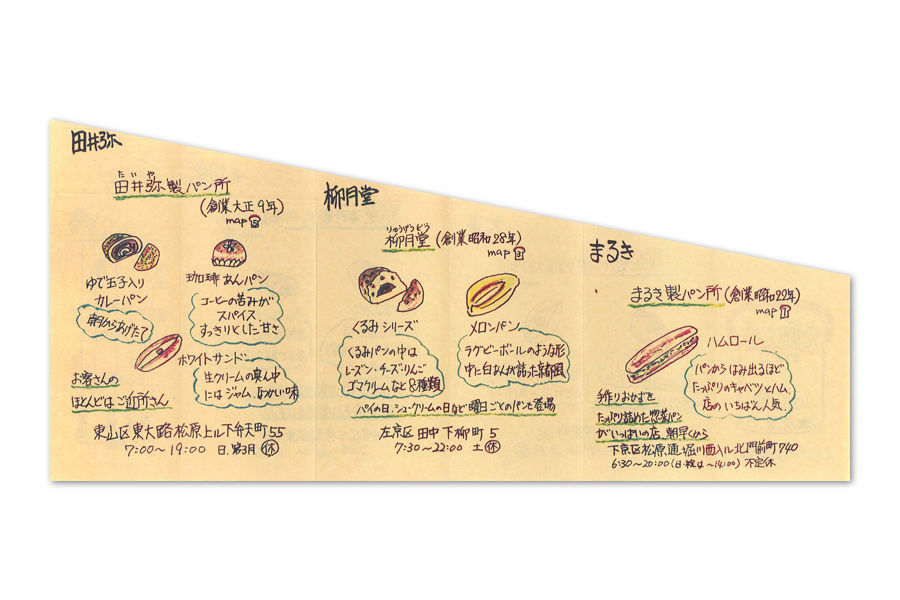 田井弥
たいや
田井弥製パン所
(創業大正9年)
map
ゆで玉子入り
カレーパン
朝からあげたて
珈琲あんパン
コーヒーの苦みが
スパイス
すっきりとした甘さ
ホワイトサンド
生クリームの真ん中
にはジャム、なつかしい味
お客さんの
ほとんどはご近所さん
東山区東大路松原上ル下弁天町55
7:00〜19:00 日、第3月 休
柳月堂
りゅうげつどう
柳月堂(創業昭和28年)
map
くるみシリーズ
くるみパンの中は
レーズン・チーズ・りんご
ゴマクリームなど8種類
メロンパン
ラグビーボールのような形
中に白あんが詰った京都風
パイの日、シュークリームの日など曜日ごとのパンも登場
左京区田中下柳町5
7:30〜22:00 土 休
まるき
まるき製パン所(創業昭和22年)
map
ハムロール
パンからはみ出るほど
たっぷりのキャベツとハム
店のいちばん人気
手作りおかずを
たっぷり詰めた惣菜パン
がいっぱいの店 朝早くから
下京区松原通堀川西入ル北門前町740
6:30〜20:00(日・祝は〜14:00) 不定休